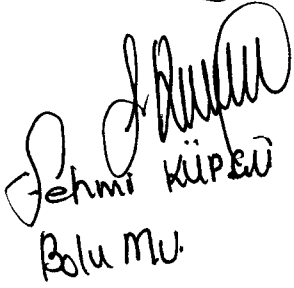 Fehmi KÜPÇÜ
Bolu Mv.